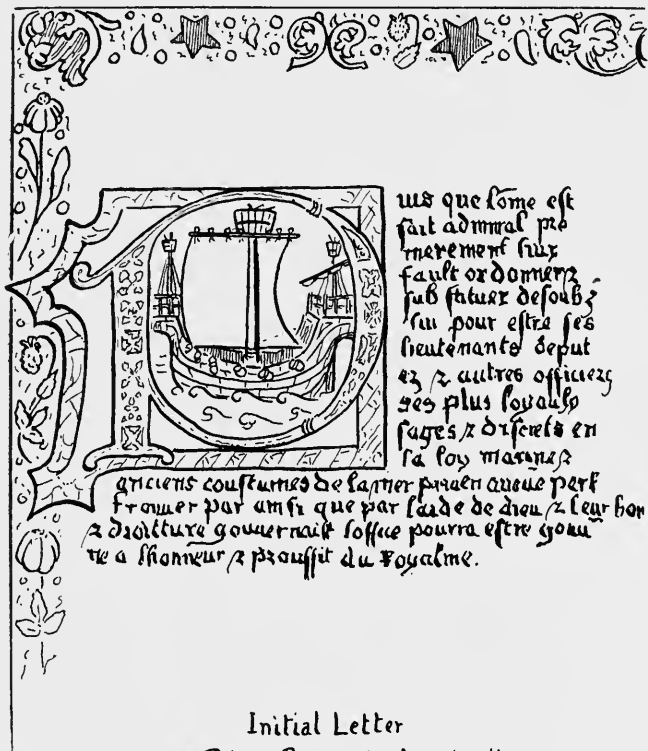 uis que lome est
fait admiral pre
mierement luy
fault ordonner z
substituer desoubz
lui pour estre ses
lieutenants deput
ez z autres officiers
gens plus loyaulx
sages z discrets en
la loy marine z
anciens coustumes de la mer
trouuer par ainsi que par laide de dieu z leur bon
z droitture gouuernail loffice pourra estre gouu
re a lhonneur z prouffit du Royalme.
Initial Letter